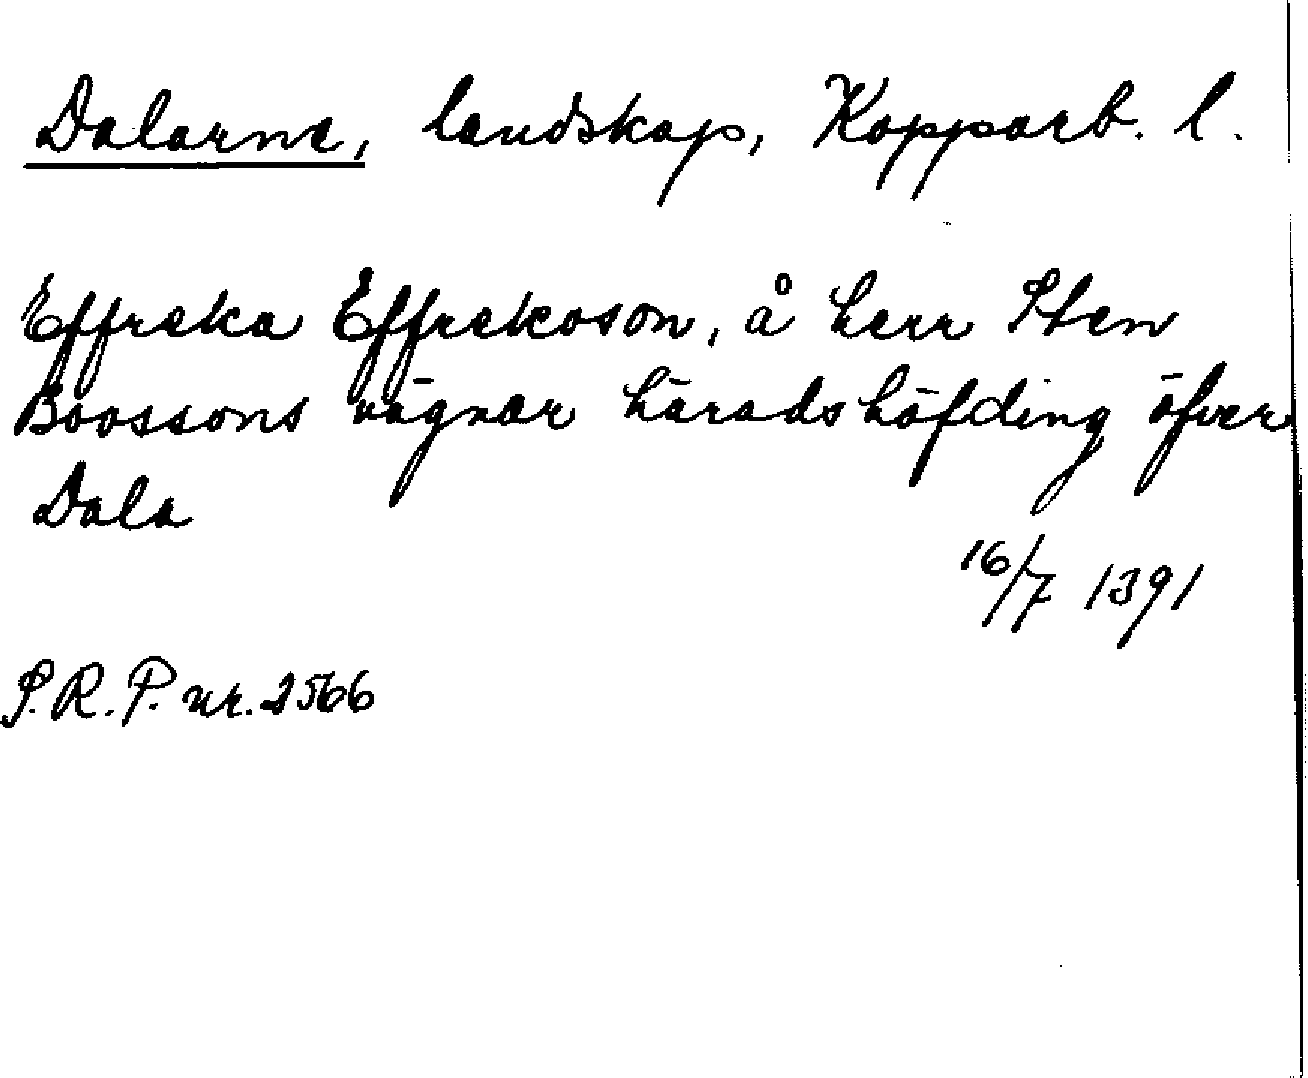 Dalarne, landskap, Kopparb. l.
Effreka Effrekoson, å herr Sten
Boossons vägnar häradshöfding öfver
Dala
16/7 1391
S.R.P. nr. 2566